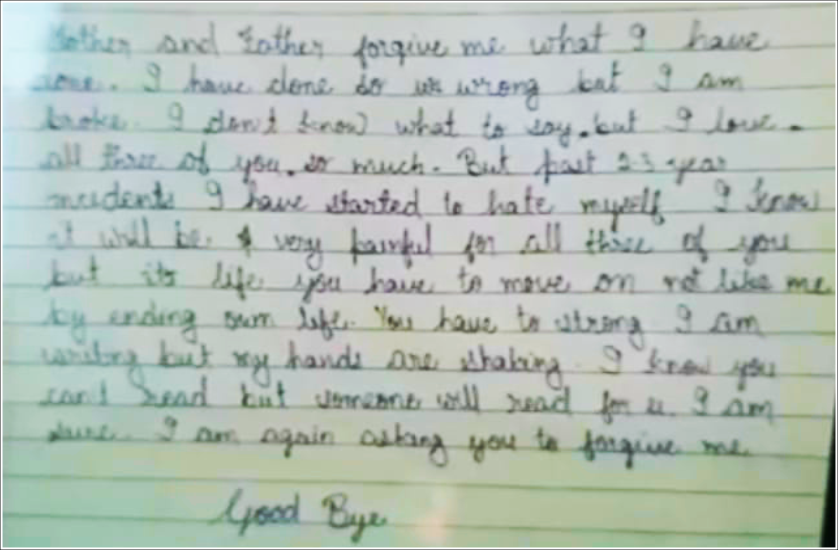 Mother and Father forgive me what I have
done. I have done so wrong but I am
broke. I don't know what to say. but I love.
all three of you. so much. But past 2-3 year
incidents I have started to hate myself I know
it will be very painful for all three of you
but its life you have to move on not like me
by ending own life. You have to strong I am
writing but my hands are shaking. I know you
can't read but someone will read for u. I am
sure. I am again asking you to forgive me
Good Bye